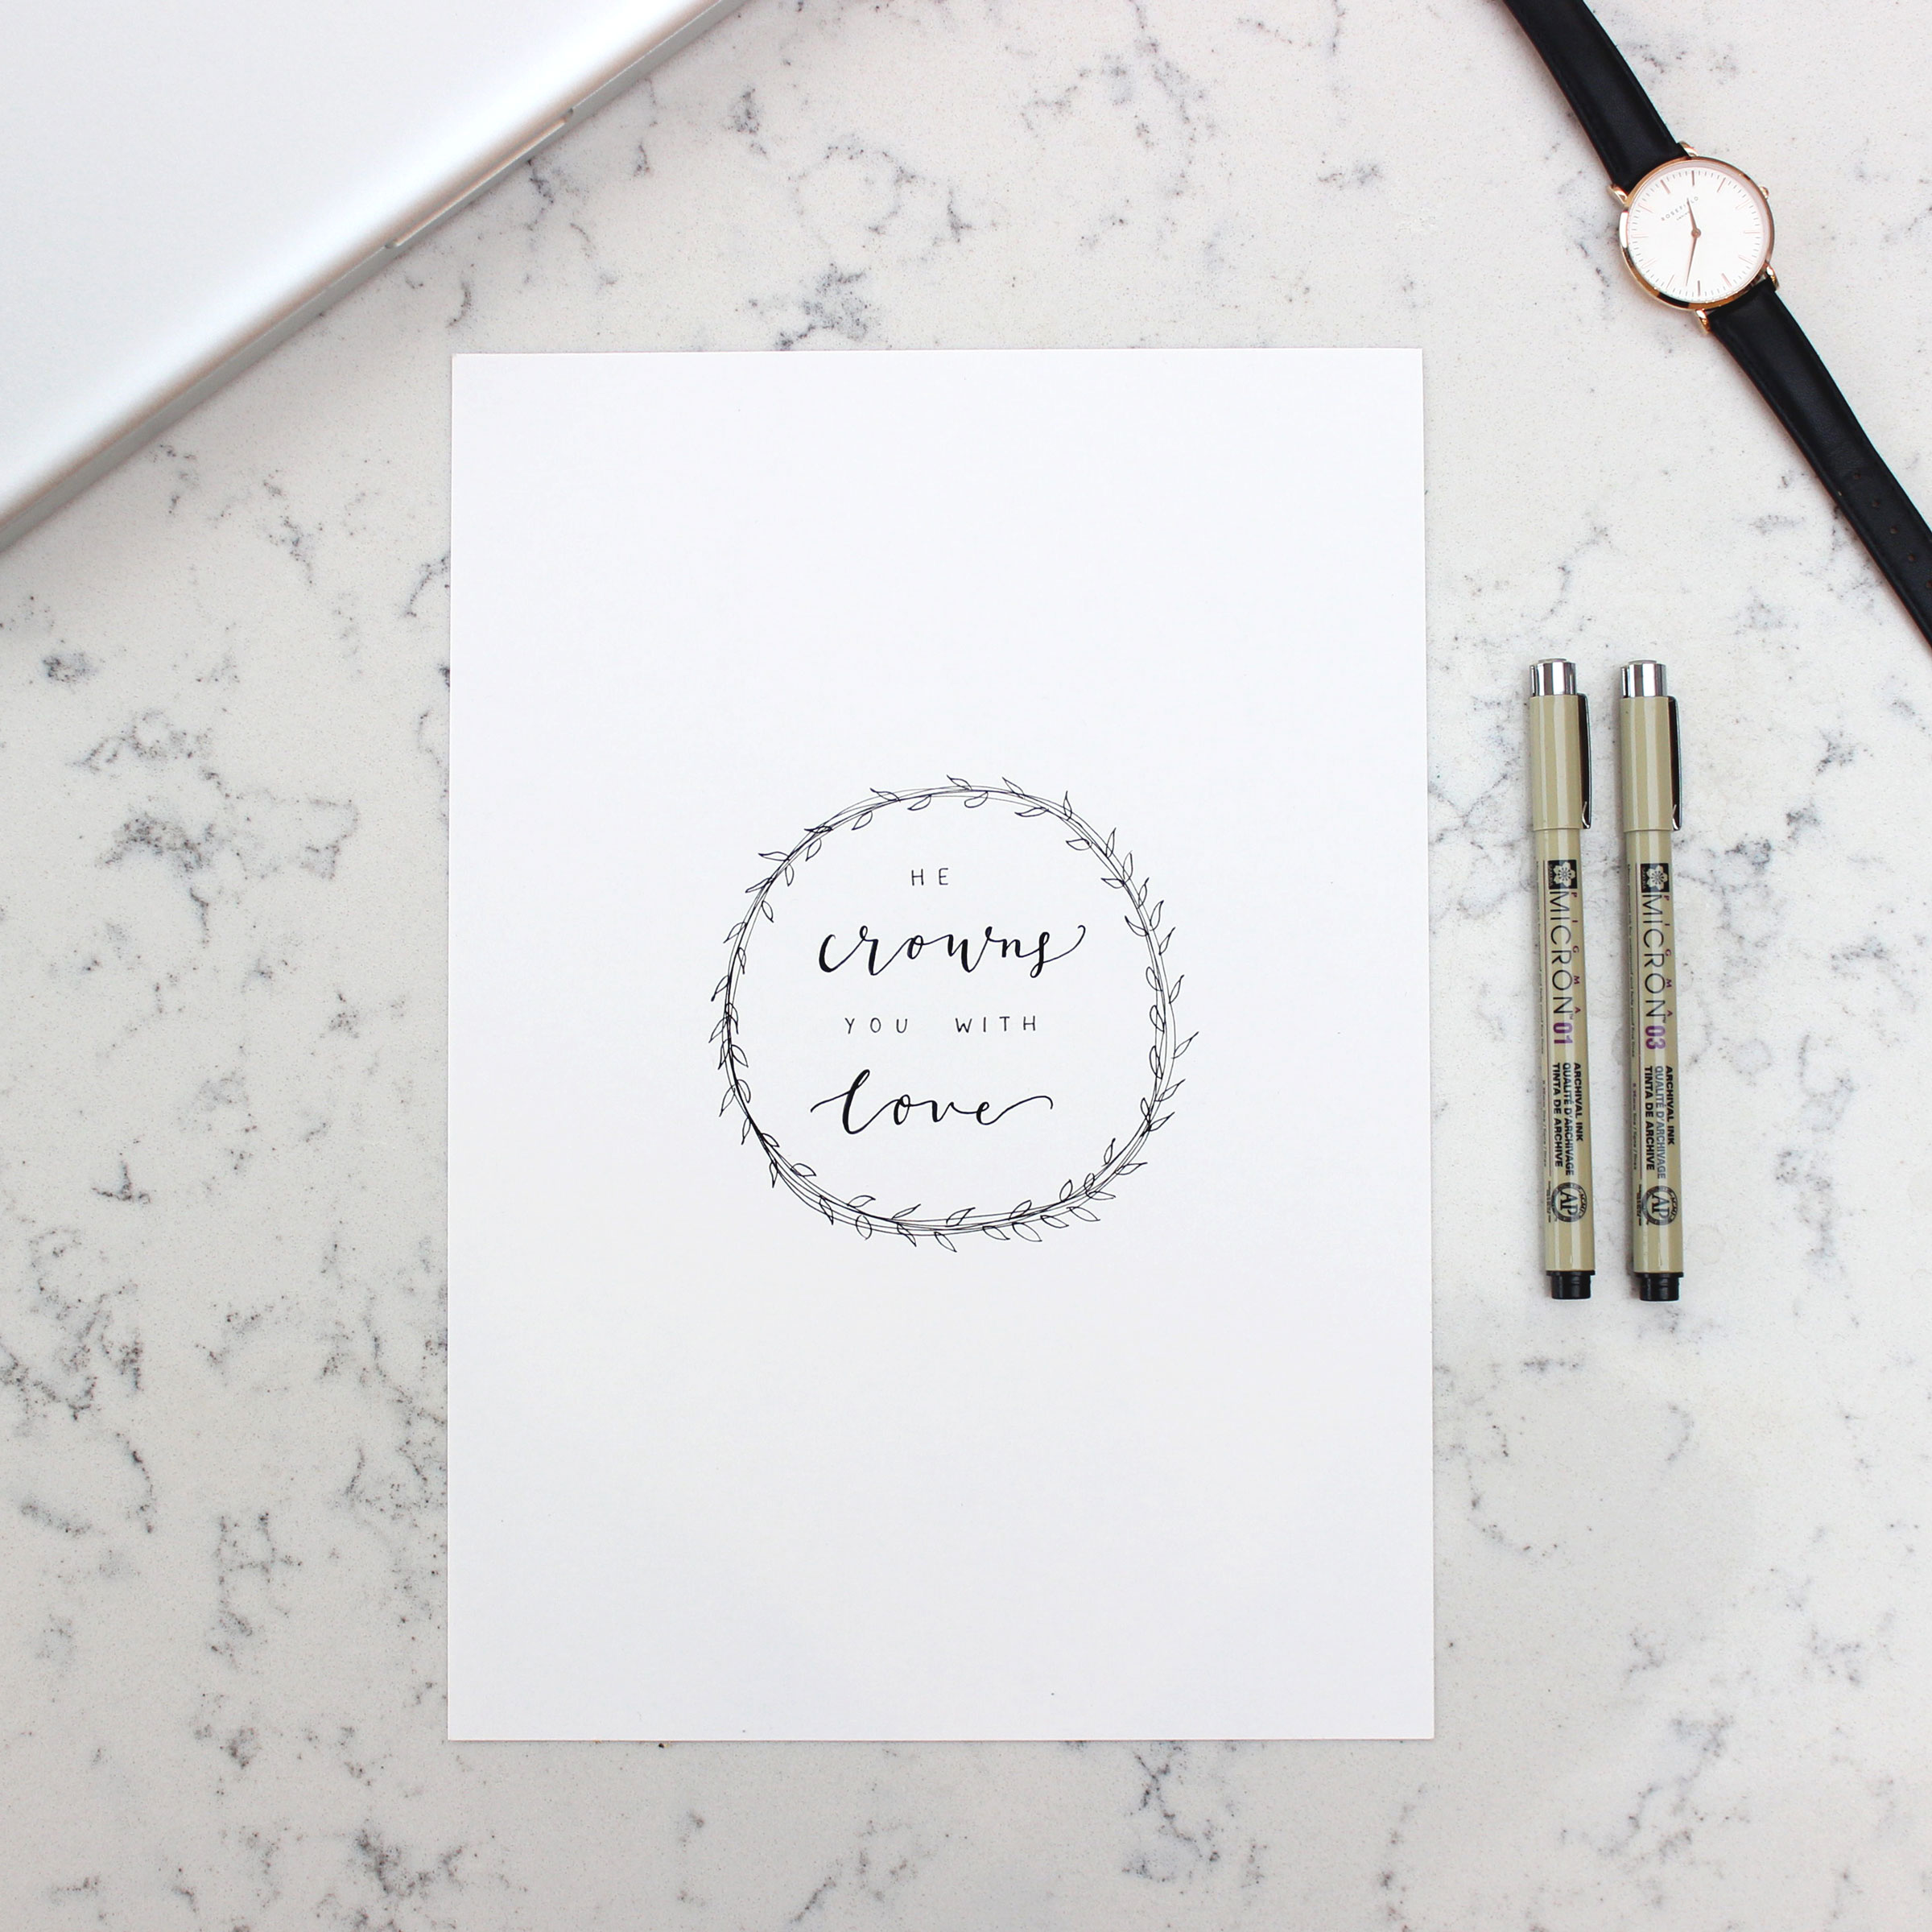 HE
crowns
YOU WITH
love
ROSEFIELD
PIGMA
MICRON™ 01
ARCHIVAL INK
QUALITÉ D'ARCHIVAGE
TINTA DE ARCHIVE
AP
PIGMA
MICRON™ 03
ARCHIVAL INK
QUALITÉ D'ARCHIVAGE
TINTA DE ARCHIVE
AP